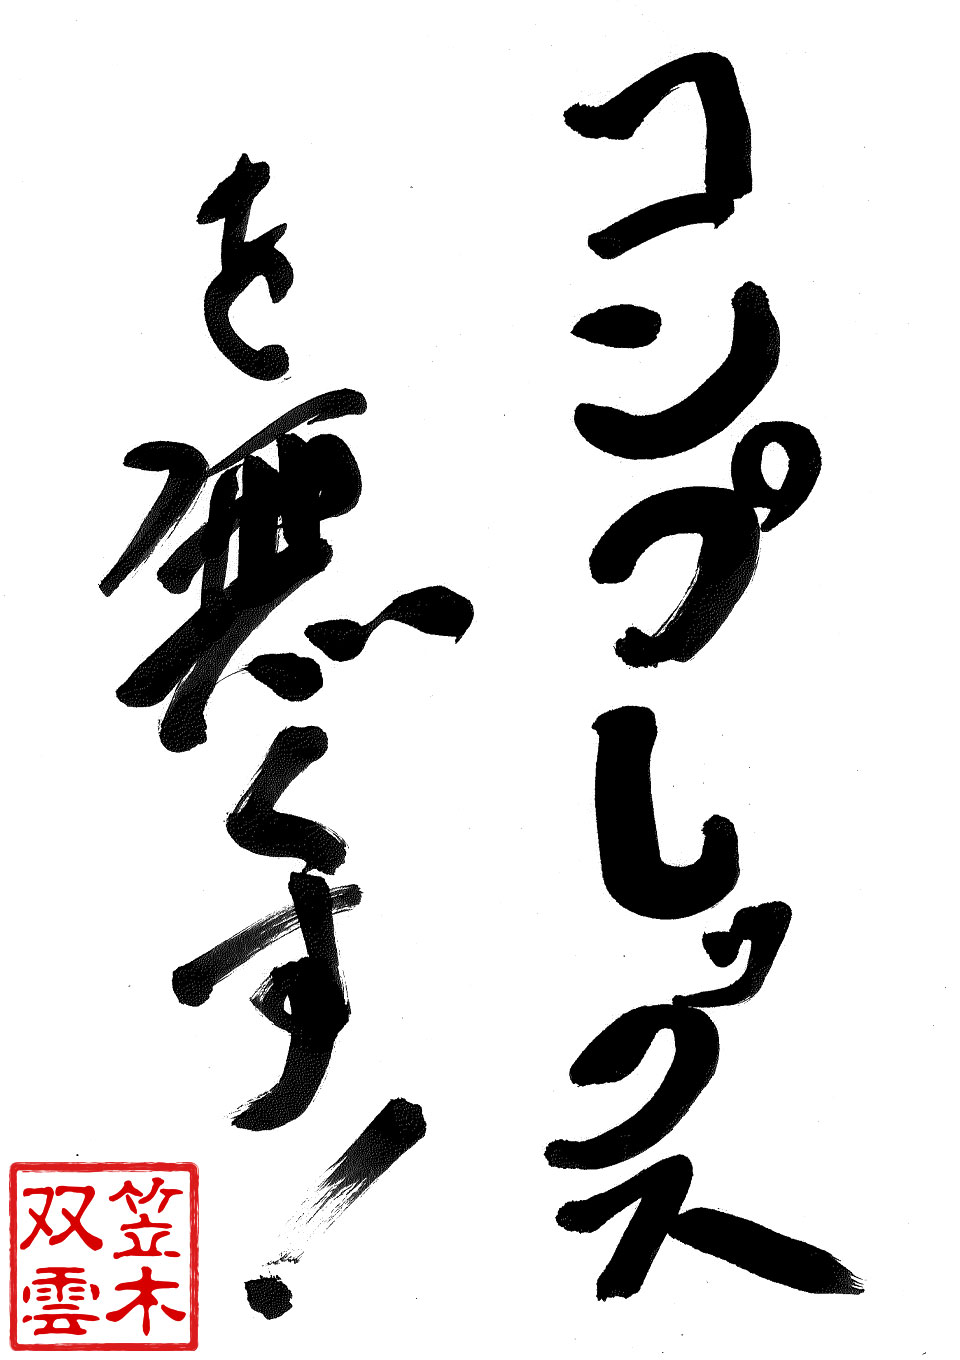 コンプレックス
を無くす!
笠木
双雲